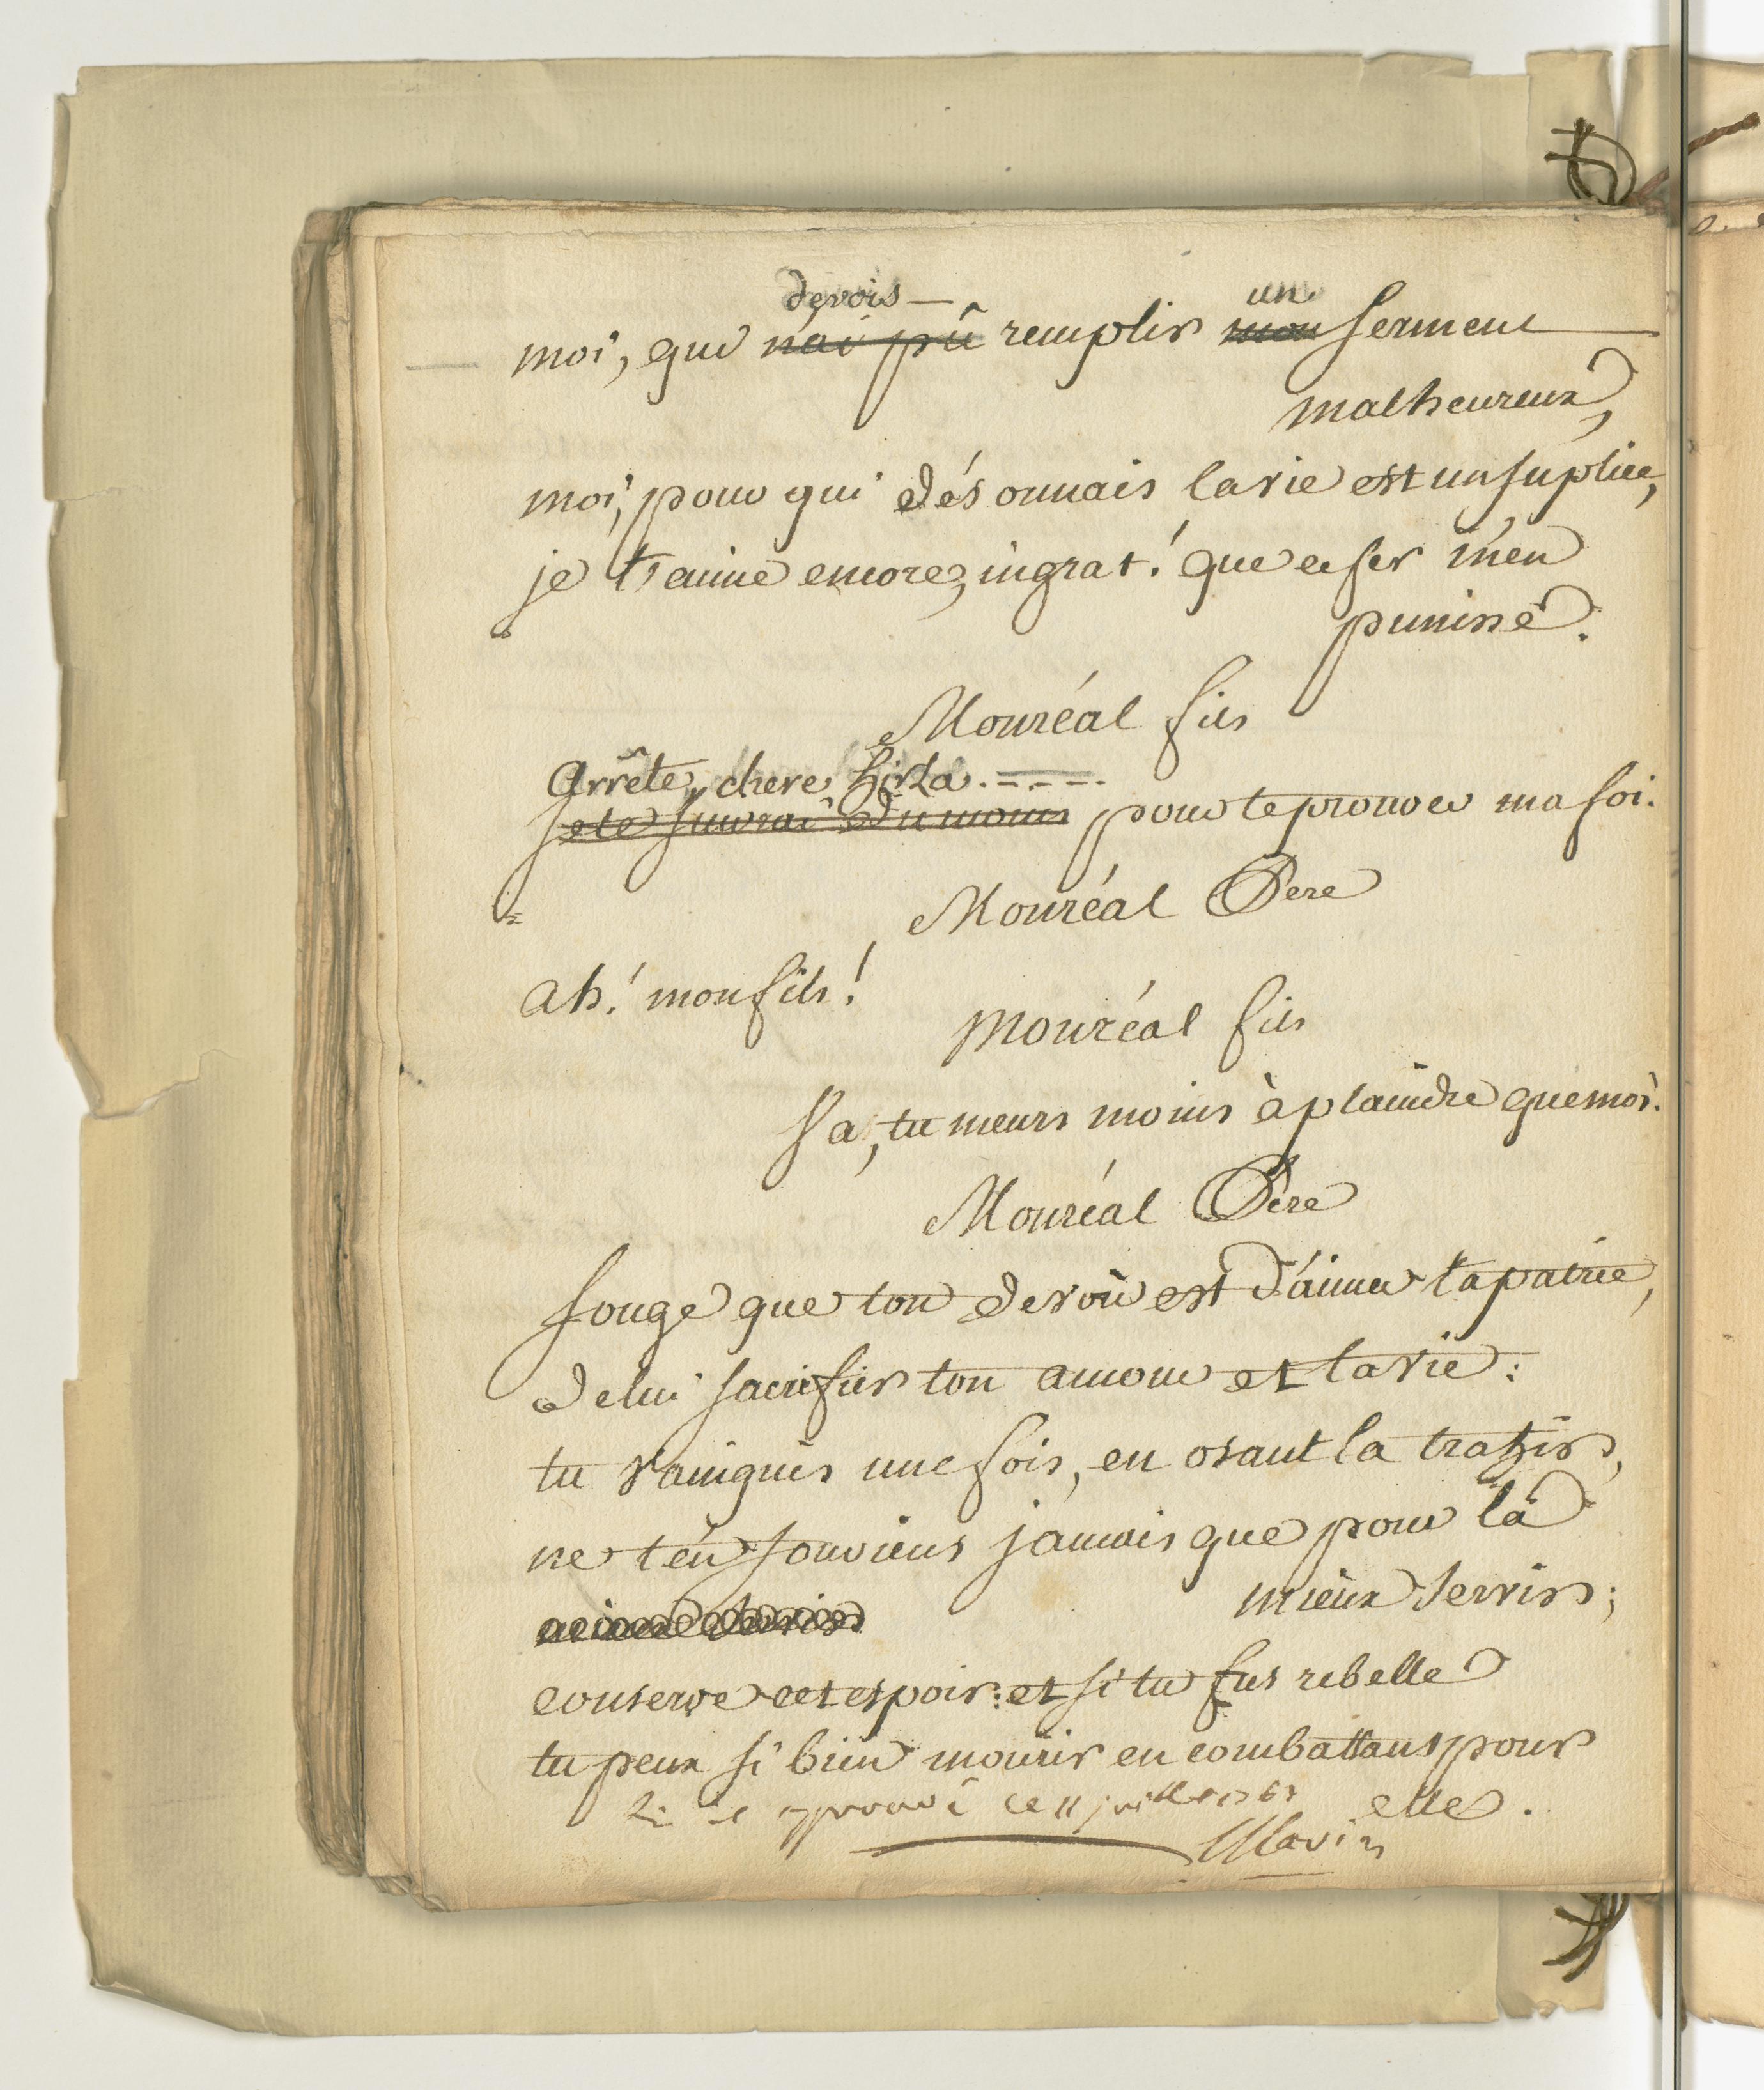 devois — un
moi, qui n'ai pû remplir mon serment
malheureux,
moi, pour qui désormais la vie est un suplice,
je t'aime encore, ingrat! que ce fer m'en
punisse.
Monréal fils
Arrête, chere hirza. - - - -
je te suivrai du moins pour te prouver ma foi.
Monréal Pere
ah! mon fils!
Monréal fils
Va, tu meurs moins à plaindre que moi.
Monréal Pere
songe que ton devoir est d'aimer ta patrie,
de lui sacrifier ton amour et ta vie:
tu vainquis une fois, en osant la trahir,
ne t'en souviens jamais que pour la
mieux servir;
conserve cet espoir: et si tu fus rebelle
tu peux si bien mourir en combattant pour
elle.
approuvé ce 11 juillet 1767
Marin